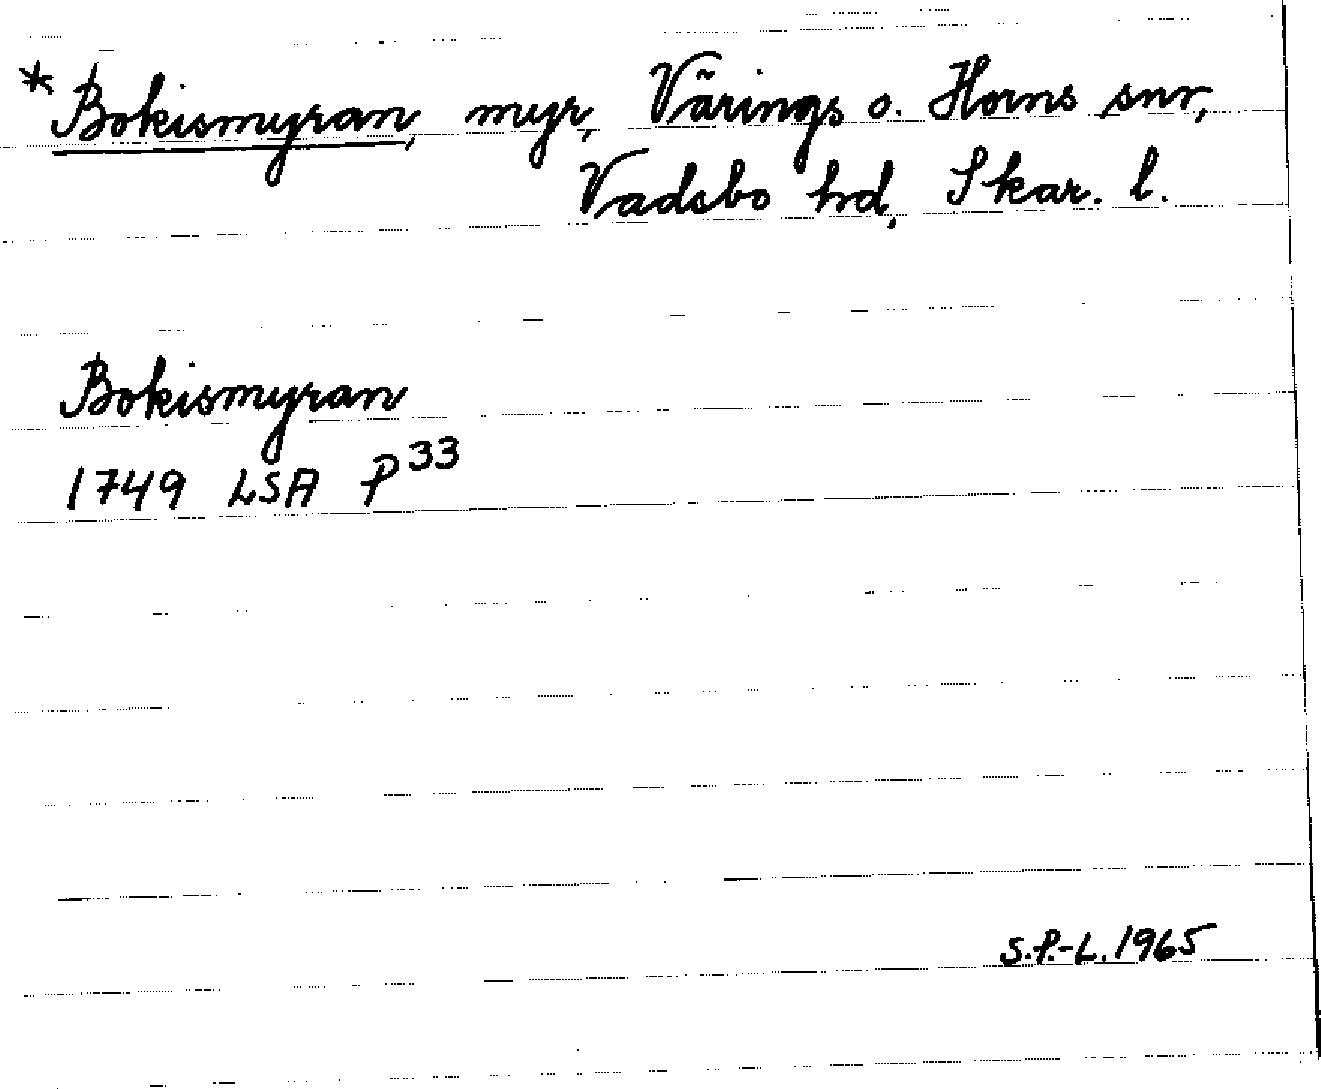 *Bokismyran, myr, Värings o. Horns snr,
Vadsbo hd, Skar. l.
Bokismyran
1749 LSA P33
S.P.-L. 1965